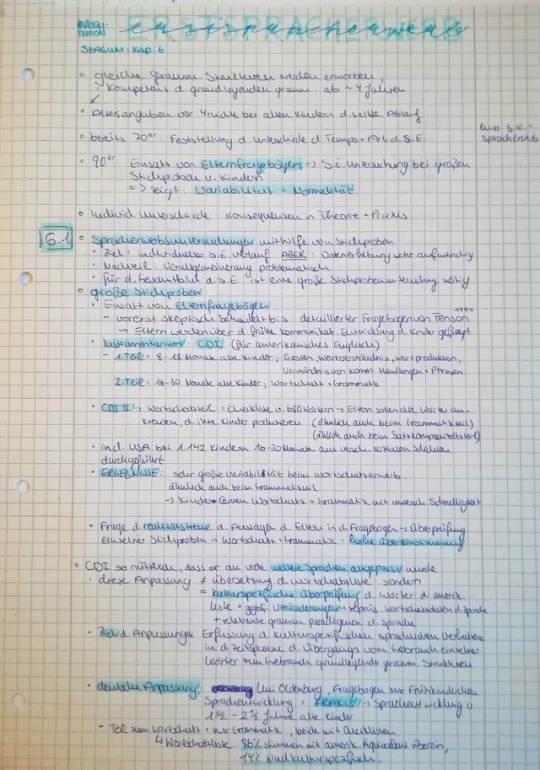 erstspracherwerb
SZAGUN: Kap. 6
gleiche gramm. Strukturen werden erworben,
Kompetenz d. grundlegenden gramm. ab ~ 4 Jahren
Altersangaben vor 4 Jahre bei allen Kindern d. selbe Ablauf
bereits 70er Feststellung d. Unterschiede d. Tempo + Art d. S.E.
S.E. =
Spracherwerb
90er Einsatz von Elternfragebögen => S.E. Untersuchung bei großen
Stichproben v. Kindern
=> zeigt: Variabilität = Normalität
individ. Unterschiede: Konsequenzen in Theorie + Praxis
6.1
Spracherwerbsuntersuchungen mithilfe von Stichproben
Ziel: individueller S.E. Verlauf ABER: Datenerhebung sehr aufwendig
Nachteil: Verallgemeinerung problematisch
für d. Gesamtbild d. S.E. ist eine große Stichprobenuntersuchung nötig
große Stichproben
Einsatz von Elternfragebögen
- vorerst skeptisch behandelt bis: detaillierter Fragebogen von Fenson
→ Eltern werden über d. frühe kommunikat. Entwicklung d. Kinder gefragt
Instrumentarium: CDI (für amerikanisches Englisch)
- 1. Teil = 8-18 Monate alte Kinder, Gesten, Wortverständnis, Wortproduktion,
Verständnis von komm. Handlungen + Phrasen
2. Teil = 16-30 Monate alte Kinder, Wortschatz + Grammatik
CDI II → Wortschatzteil = Checkliste v. 680 Wörtern → Eltern sollen die Wörter an-
kreuzen, d. ihre Kinder produzieren (ähnlich auch beim Grammatikteil)
(ähnlich auch beim Satzkomplexitätsteil)
in d. USA bei 1.142 Kindern 16-30 Monaten aus versch. sozialen Schichten
durchgeführt
ERGEBNISSE: sehr große Variabilität beim Wortschatzerwerb
ähnlich auch beim Grammatikteil
→ Kinder lernen Wortschatz + Grammatik mit untersch. Schnelligkeit
Frage d. Realitätstreue d. Aussagen d. Eltern in d. Fragebögen → Überprüfung
einzelner Stichproben → Wortschatz + Grammatik = hohe Übereinstimmung
CDI so nützlich, dass er an viele weitere Sprachen angepasst wurde
diese Anpassung ≠ Übersetzung d. Wortschatzliste sondern
= kulturspezifische Überprüfung d. Wörter d. amerik.
Liste + ggf. Veränderungen Wortschatzdaten d. Sprache
+ relevante gramm. Paradigmen d. Sprache
Ziel d. Anpassungen: Erfassung d. kulturspezifischen sprachlichen Verhaltens
in d. Zeitspanne d. Übergangs vom Gebrauch einzelner
Wörter zum Gebrauch grundlegende gramm. Strukturen
deutsche Anpassung: Uni Oldenburg, Fragebogen zur Frühkindlichen
Sprachentwicklung = FRAKIS → Sprachentwicklung v.
1½ - 2½ Jahre alte Kinder
- Teil zum Wortschatz + zur Grammatik, beide mit Checklisten
↳ Wortschatzliste 86% stimmen mit amerik. Äquivalent überein,
14% sind kulturspezifisch